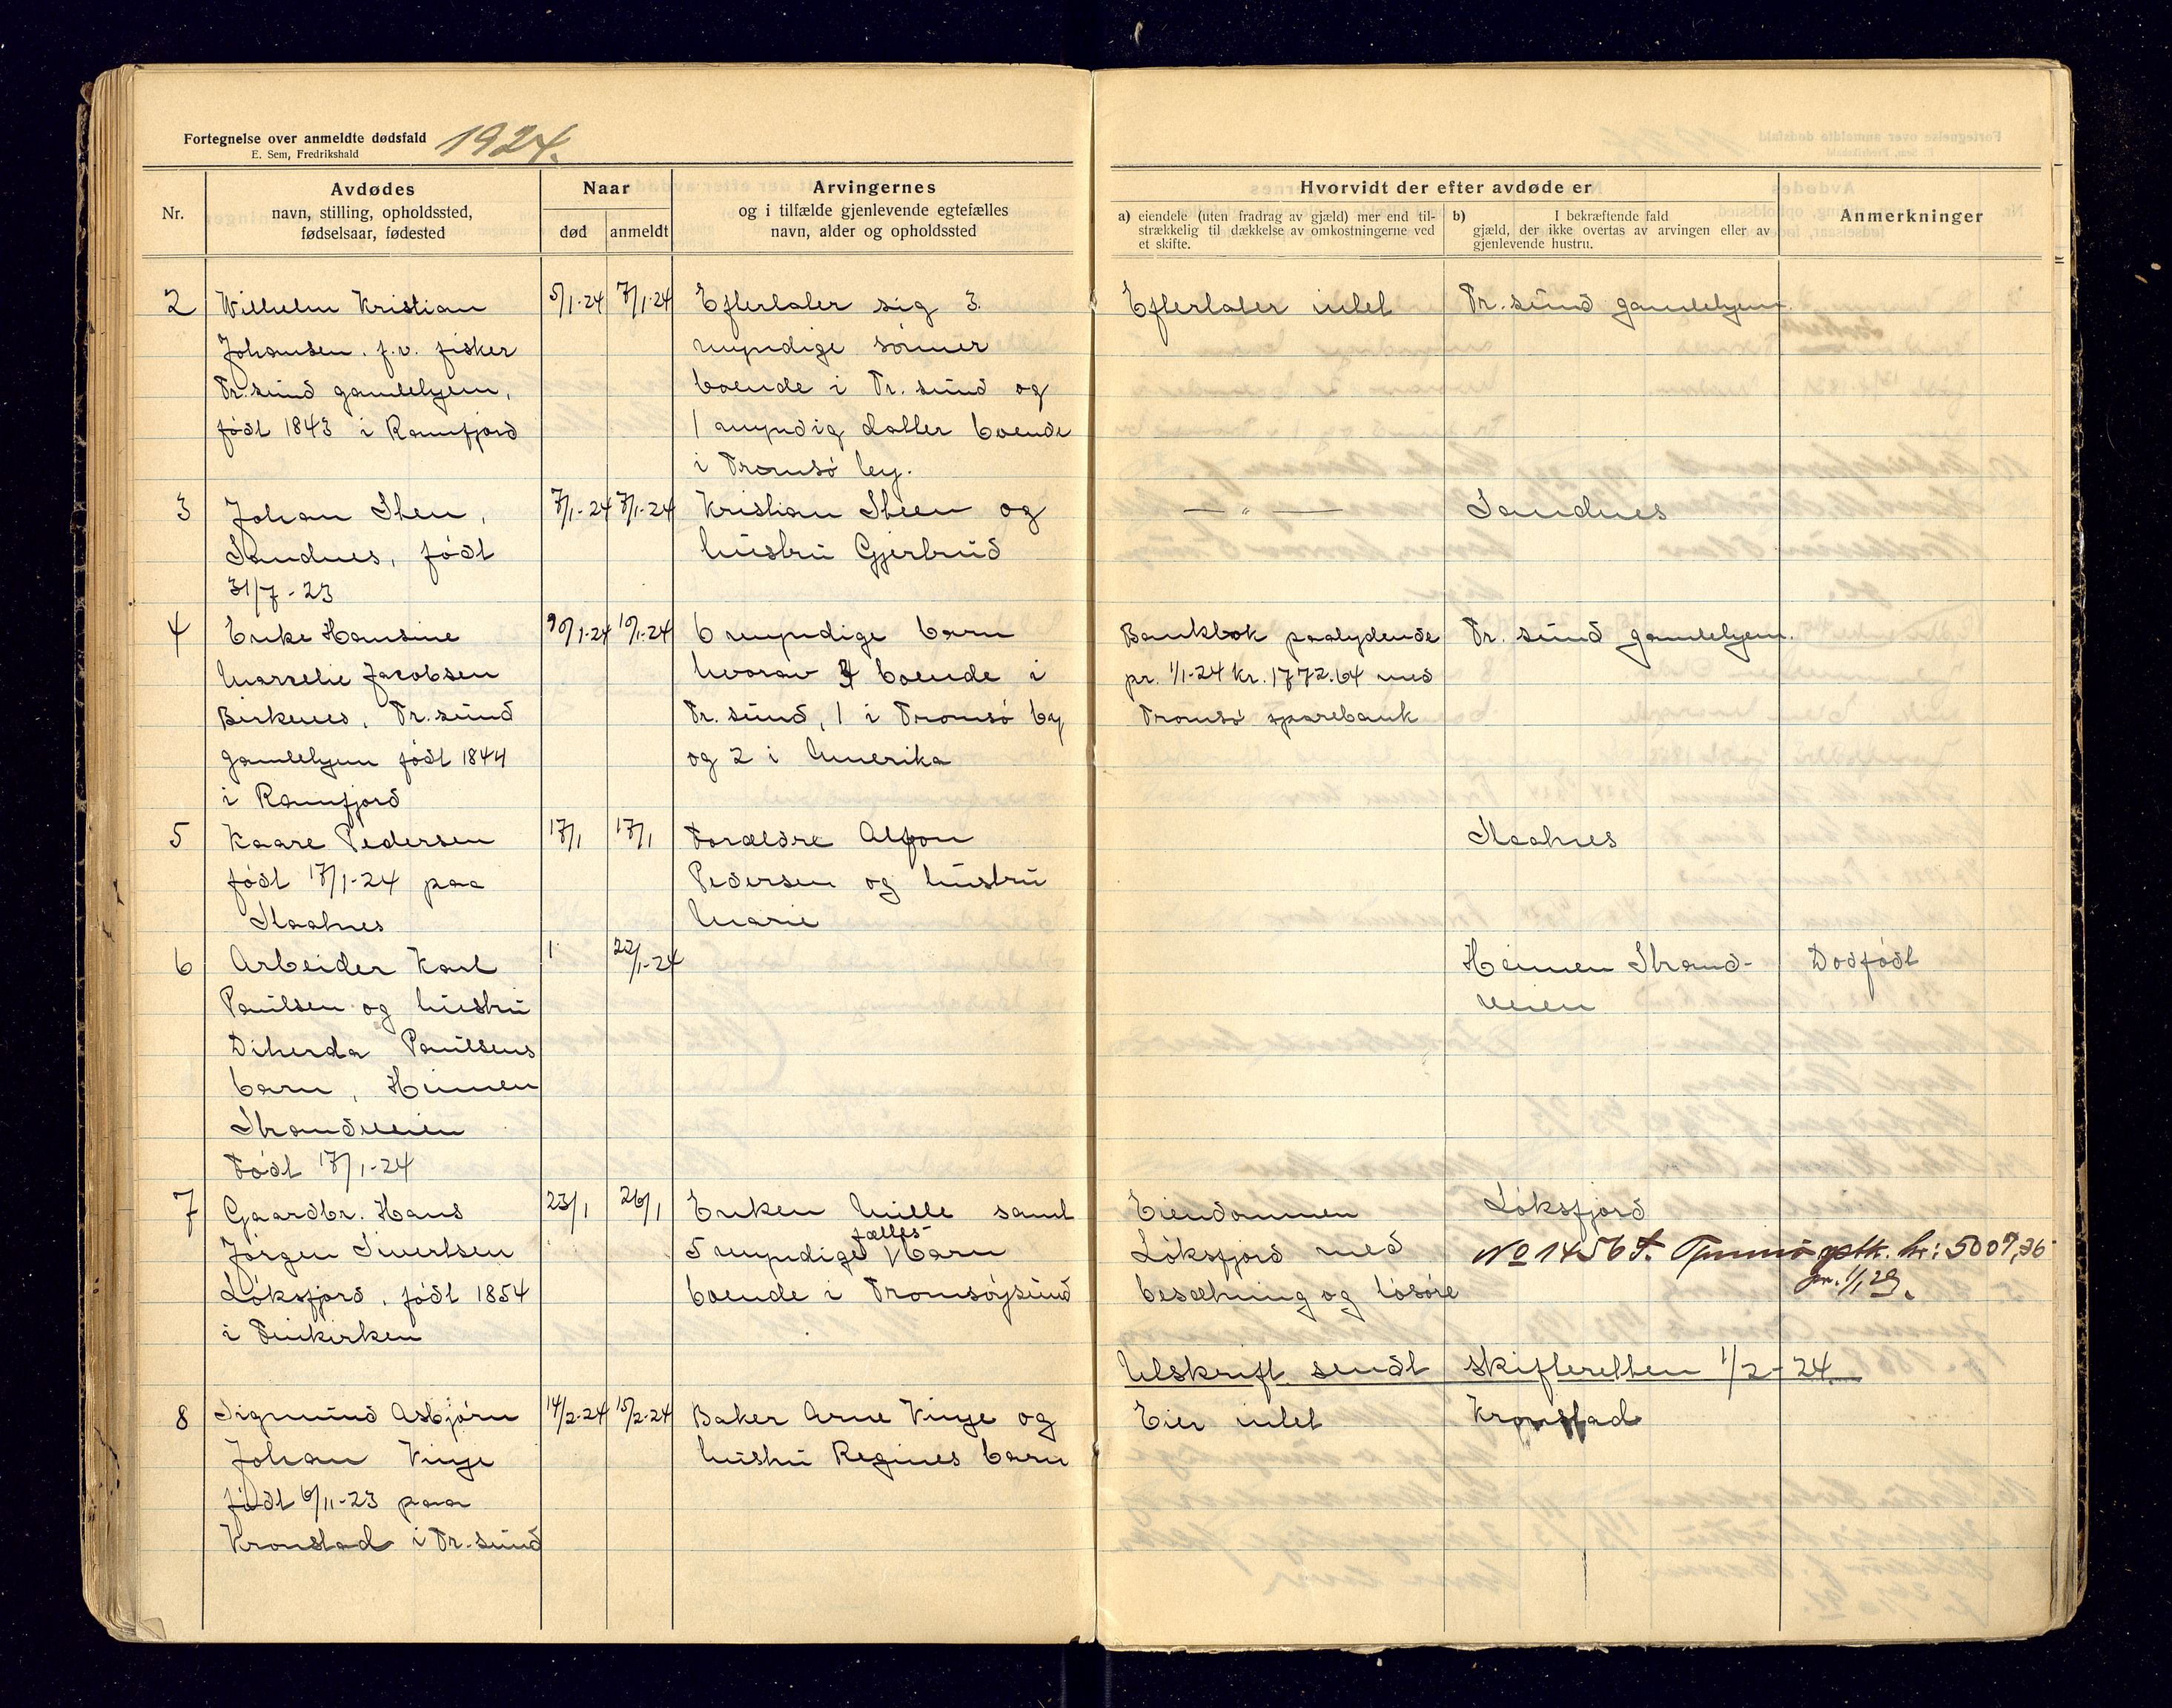 Fortegnelse over anmeldte dødsfald 1924.
E. Sem, Fredrikshald
Nr.
Avdødes
navn, stilling, opholdssted,
fødselsaar, fødested
Naar
død
anmeldt
Arvingernes
og i tilfælde gjenlevende egtefælles
navn, alder og opholdssted
Hvorvidt der efter avdøde er
a) eiendele (uten fradrag av gjæld) mer end til-
strækkelig til dækkelse av omkostningerne ved
et skifte.
b) I bekræftende fald
gjæld, der ikke overtas av arvingen eller av
gjenlevende hustru.
Anmerkninger
2
Wilhelm Kristian
Johansen. f.v. fisker
Tr.sund gamlehjem,
født 1843 i Ramfjord
5/1-24
7/1-24
Efterlater sig 3
myndige sønner
boende i Tr. sund og
1 myndig datter boende
i Tromsø by.
Efterlater intet
Tr. sund gamlehjem.
3
Johan Steen,
Sandnes, født
31/7-23
7/1-24
7/1-24
Kristian Steen og
hustru Gjertrud
— " —
Sandnes
4
Enke Hansine
Marselie Jacobsen
Birkenes, Tr.sund
gamlehjem født 1844
i Ramfjord
10/1-24
6 myndige barn
hvorav boende i
Tr. sund, 1 i Tromsø by
og 2 i Amerika
Bankbok paalydende
pr. 1/1-24 kr. 1772.64 med
Tromsø sparebank
Tr. sund gamlehjem.
5
Kaare Pedersen
født 17/1-24 paa
Staalnes
17/1
17/1
Forældre Alfon
Pedersen og hustru
Marie
Staalnes
6
Arbeider Karl
Paulsen og hustru
Paulsens
barn, Heimen
Strandveien
Født 17/1-24
22/1-24
Heimen Strand-
veien
Dødfødt
7
Gaardbr. Hans
Jørgen Sivertsen
Løksfjord, født 1854
i Finkirken
23/1
26/1
Enken Mille samt
5 myndige fælles barn
boende i Tromsøysund
Eiendommen
Løksfjord med
besætning og løsøre
Løksfjord
No 1456 kr: 5007,36
pr. 1/1 29.
Utskrift sendt skifteretten 1/2-24
8
Sigmund Asbjørn
Johan Vinje
født 6/11-23 paa
Kronstad i Tr.sund
14/2-24
15/2-24
Baker Arne Vinje og
hustru Regines barn
Eier intet
Kronstad